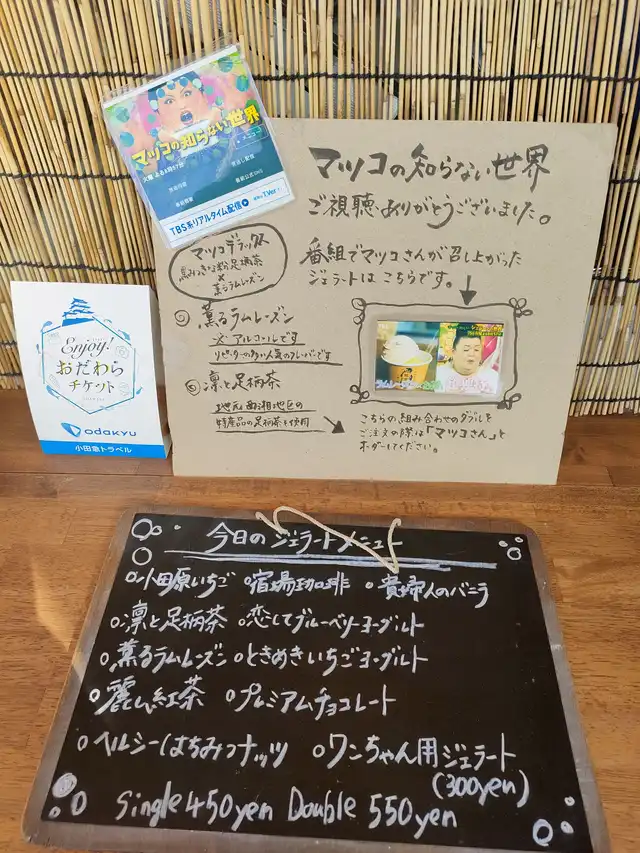 マツコの知らない世界
火曜 よる8時57分
見逃し配信
番組公式SNS
TBS系リアルタイム配信
TVer
マツコの知らない世界
ご視聴ありがとうございました。
番組でマツコさんが召し上がった
ジェラートはこちらです。
マツコデラックス
足柄茶
×
薫るラムレーズン
薫るラムレーズン
アルコールです
リピーターの多い人気のフレーバーです
凛と足柄茶
地元西湘地区の
特産品の足柄茶を使用
こちらの組み合わせのダブルを
ご注文の際は「マツコさん」と
オーダーしてください。
Enjoy!
おだわら
チケット
odakyu
小田急トラベル
今日のジェラートメニュー
○小田原いちご ○宿場珈琲 ○貴婦人のバニラ
○凛と足柄茶 ○恋してブルーベリーヨーグルト
○薫るラムレーズン ○ときめきいちごヨーグルト
○麗しい紅茶 ○プレミアムチョコレート
○ヘルシーはちみつナッツ ○ワンちゃん用ジェラート
(300yen)
Single 450yen Double 550yen